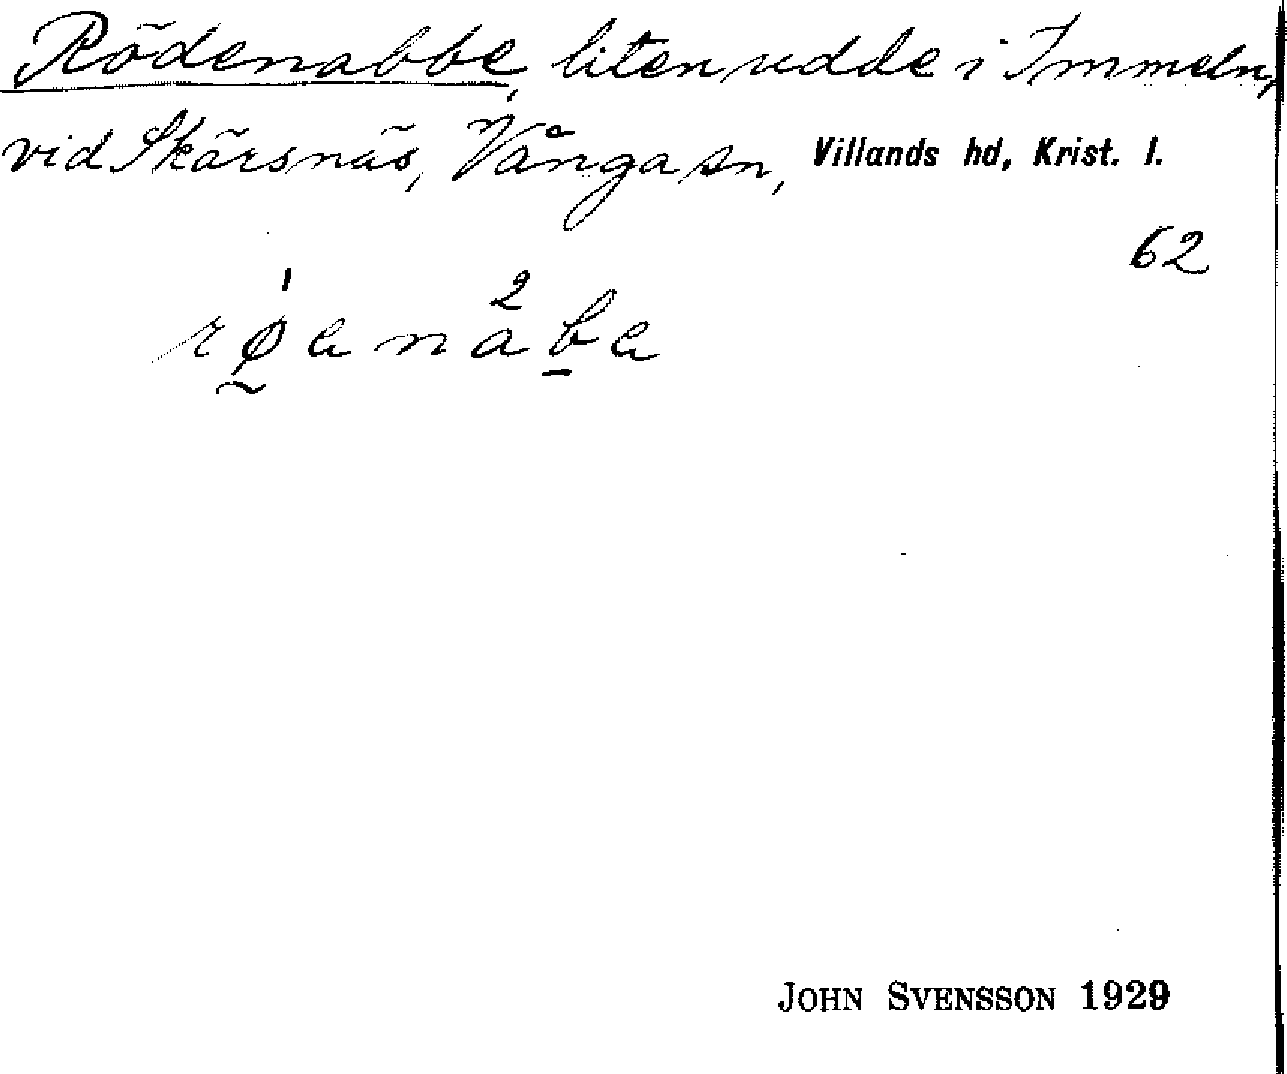 Rödenabbe, liten udde i Immeln,
vid Skärsnäs, Vånga sn, Villands hd, Krist. l.
62
rø̰¹ena²b̲e
JOHN SVENSSON 1929